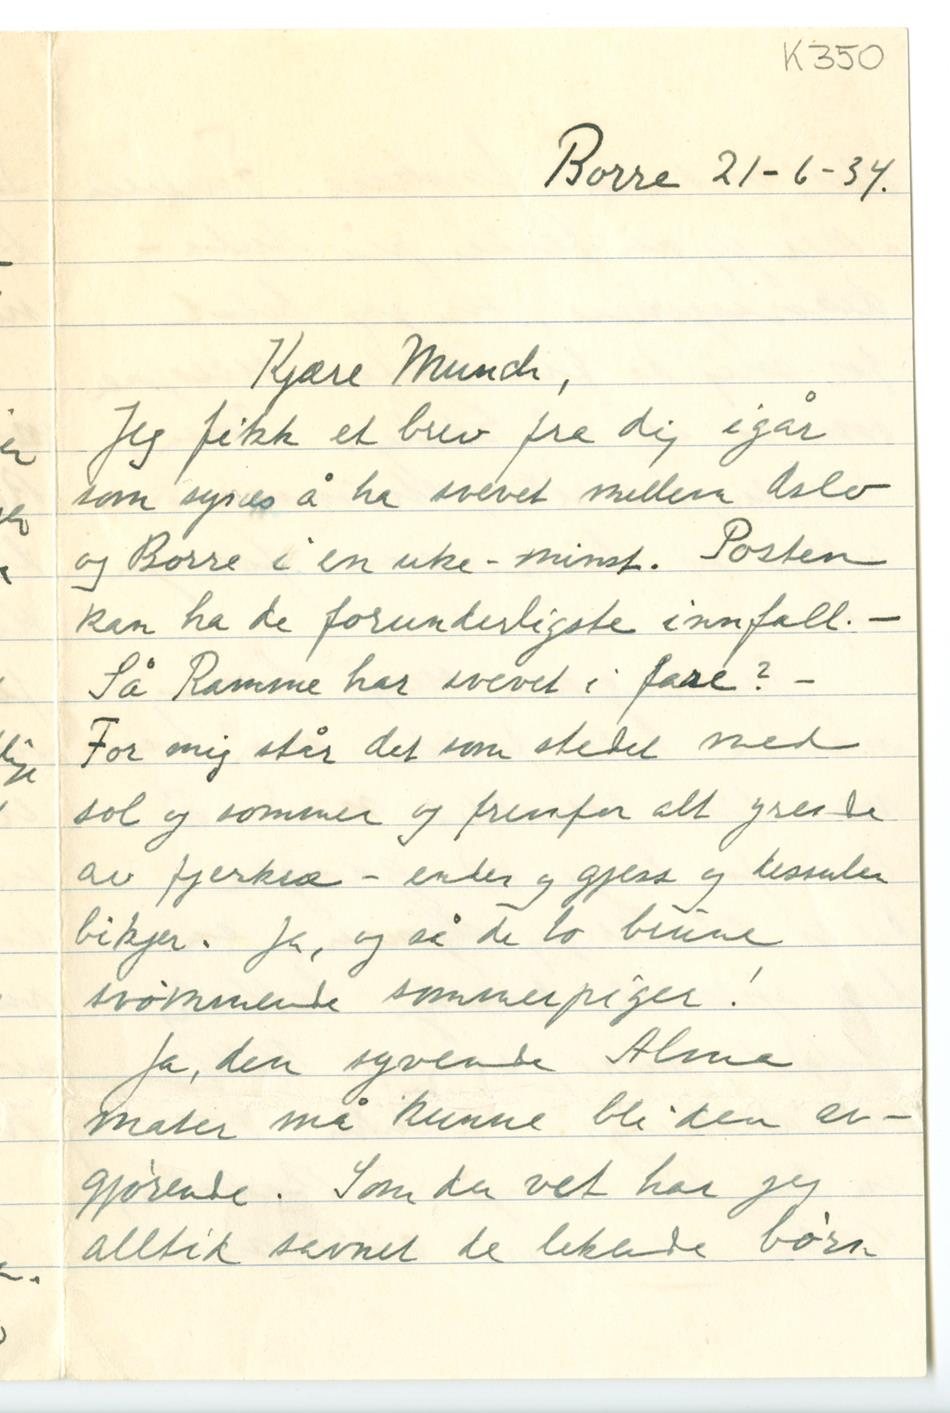 K350
Borre 21-6-34.
Kjære Munch,
Jeg fikk et brev fra dig igår
som synes å ha svevet mellem Oslo
og Borre i en uke - minst. Posten
kan ha de forunderligste innfall. —
Så Ramme har svevet i fare? -
For mig står det som stedet med
sol og sommer og fremfor alt yrende
av fjerkræ - ender og gjess og dessuten
bikjer. Ja, og så de to
svømmende sommerpiger!
Ja, den syvende Alma
mater må kunne bli den av-
gjørende. Som du vet har jeg
alltid savnet de lekende børn